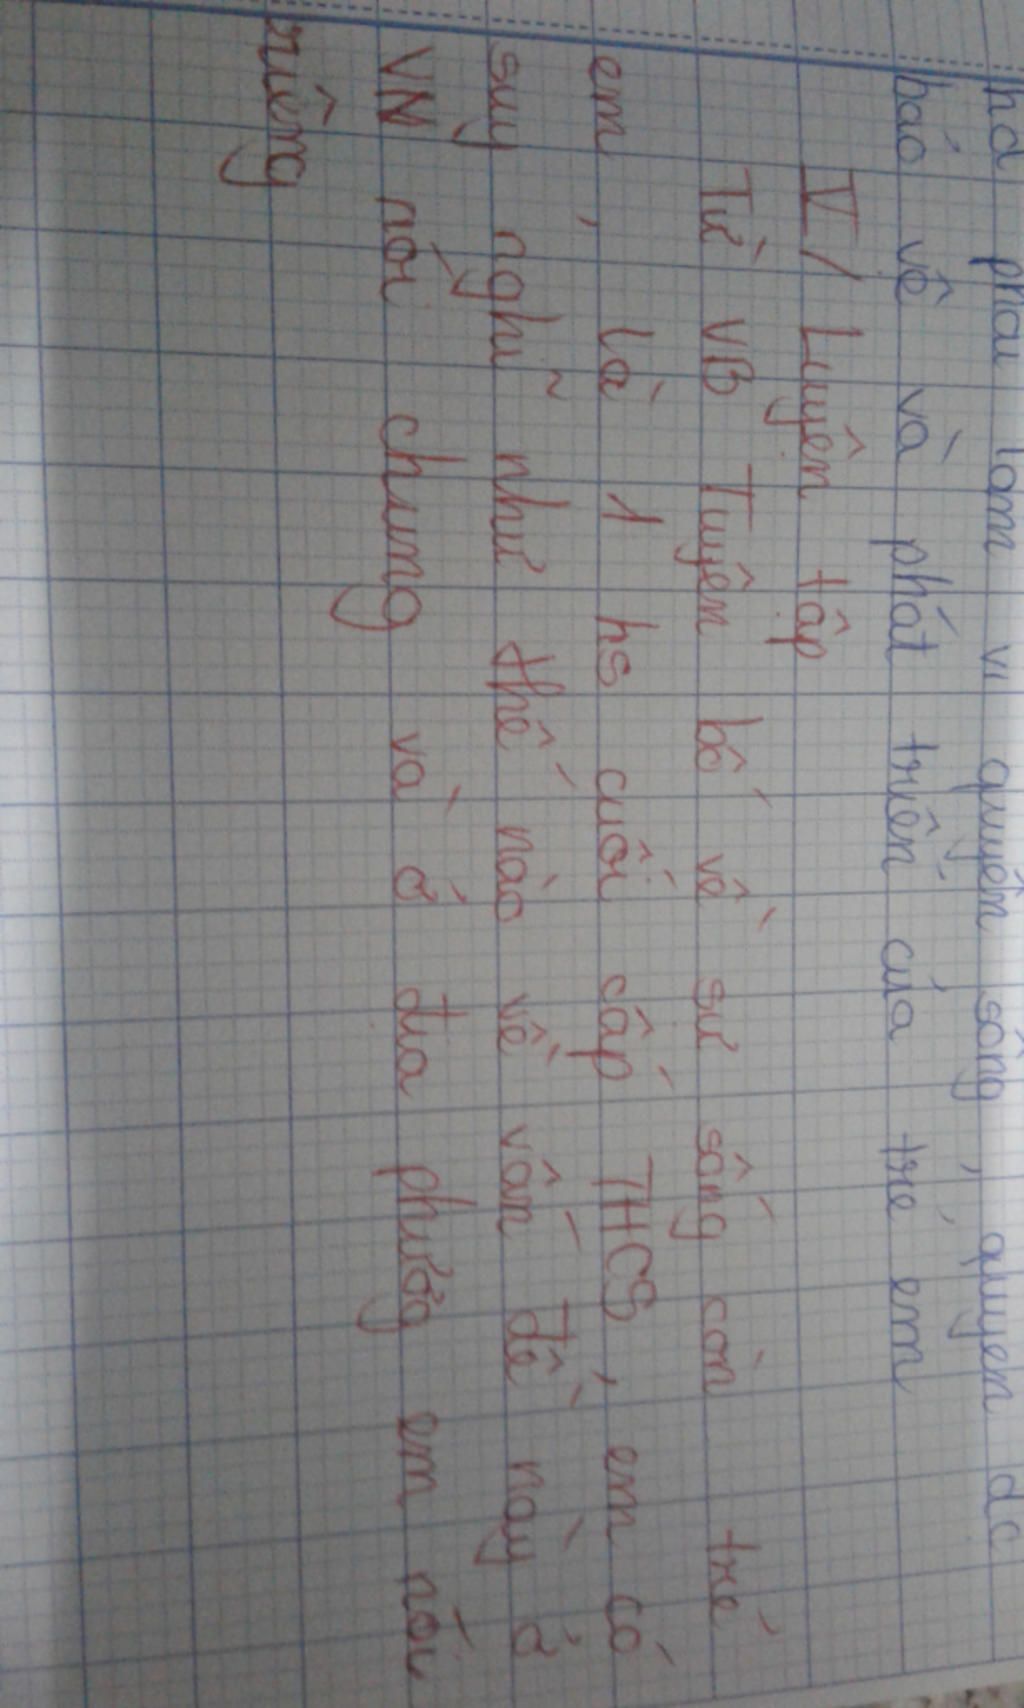 hđ phải làm vì quyền sống, quyền đc
bảo vệ và phát triển của trẻ em
V/ Luyện tập
Từ VB Tuyên bố về sự sống còn trẻ
em, là 1 hs cuối cấp THCS, em có
suy nghĩ như thế nào về vấn đề này ở
VN nói chung và ở địa phương em nói
riêng